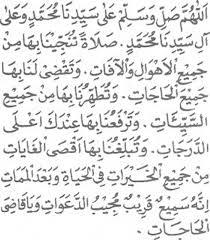 اَللّٰهُمَّ صَلِّ وَسَلِّمْ عَلَى سَيِّدِنَا مُحَمَّدٍ وَعَلَى
آلِ سَيِّدِنَا مُحَمَّدٍ. صَلَاةً تُنْجِيْنَا بِهَا مِنْ
جَمِيْعِ الْأَهْوَالِ وَالْآفَاتِ. وَتَقْضِى لَنَا بِهَا
جَمِيْعَ الْحَاجَاتِ. وَتُطَهِّرُنَا بِهَا مِنْ جَمِيْعِ
السَّيِّئَاتِ. وَتَرْفَعُنَا بِهَا عِنْدَكَ اَعْلَى
الدَّرَجَاتِ. وَتُبَلِّغُنَا بِهَا اَقْصَى الْغَايَاتِ
مِنْ جَمِيْعِ الْخَيْرَاتِ فِى الْحَيَاةِ وَبَعْدَ الْمَمَاتِ
اِنَّهُ سَمِيْعٌ قَرِيْبٌ مُجِيْبُ الدَّعَوَاتِ وَيَاقَاضِىَ
الْحَاجَاتِ.